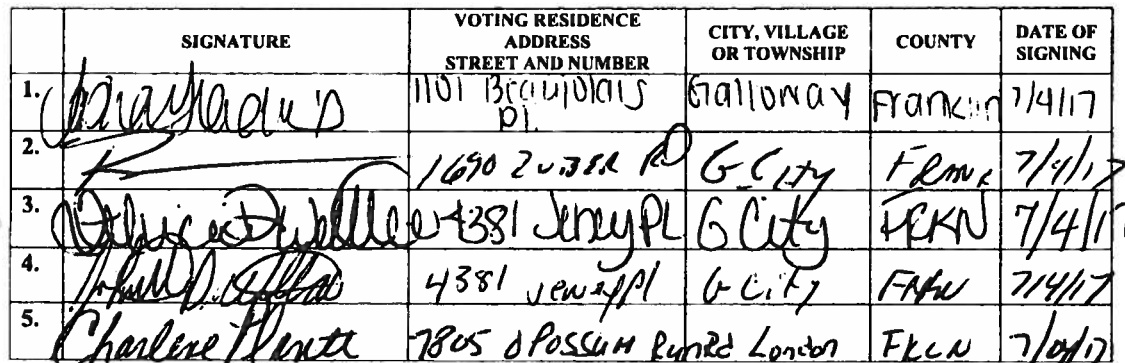 SIGNATURE VOTING RESIDENCE ADDRESS STREET AND NUMBER CITY, VILLAGE OR TOWNSHIP COUNTY DATE OF SIGNING
1. 1101 Beaujolais Pl. Galloway Franklin 7/4/17
2. 1690 Zuber RD G City FRANK 7/4/17
3. 4381 Jersey PL G City FRKN 7/4/17
4. 4381 Jersey pl G City FRKN 7/4/17
5. Charlene 7805 OPOSSUM Run Rd London FKLN